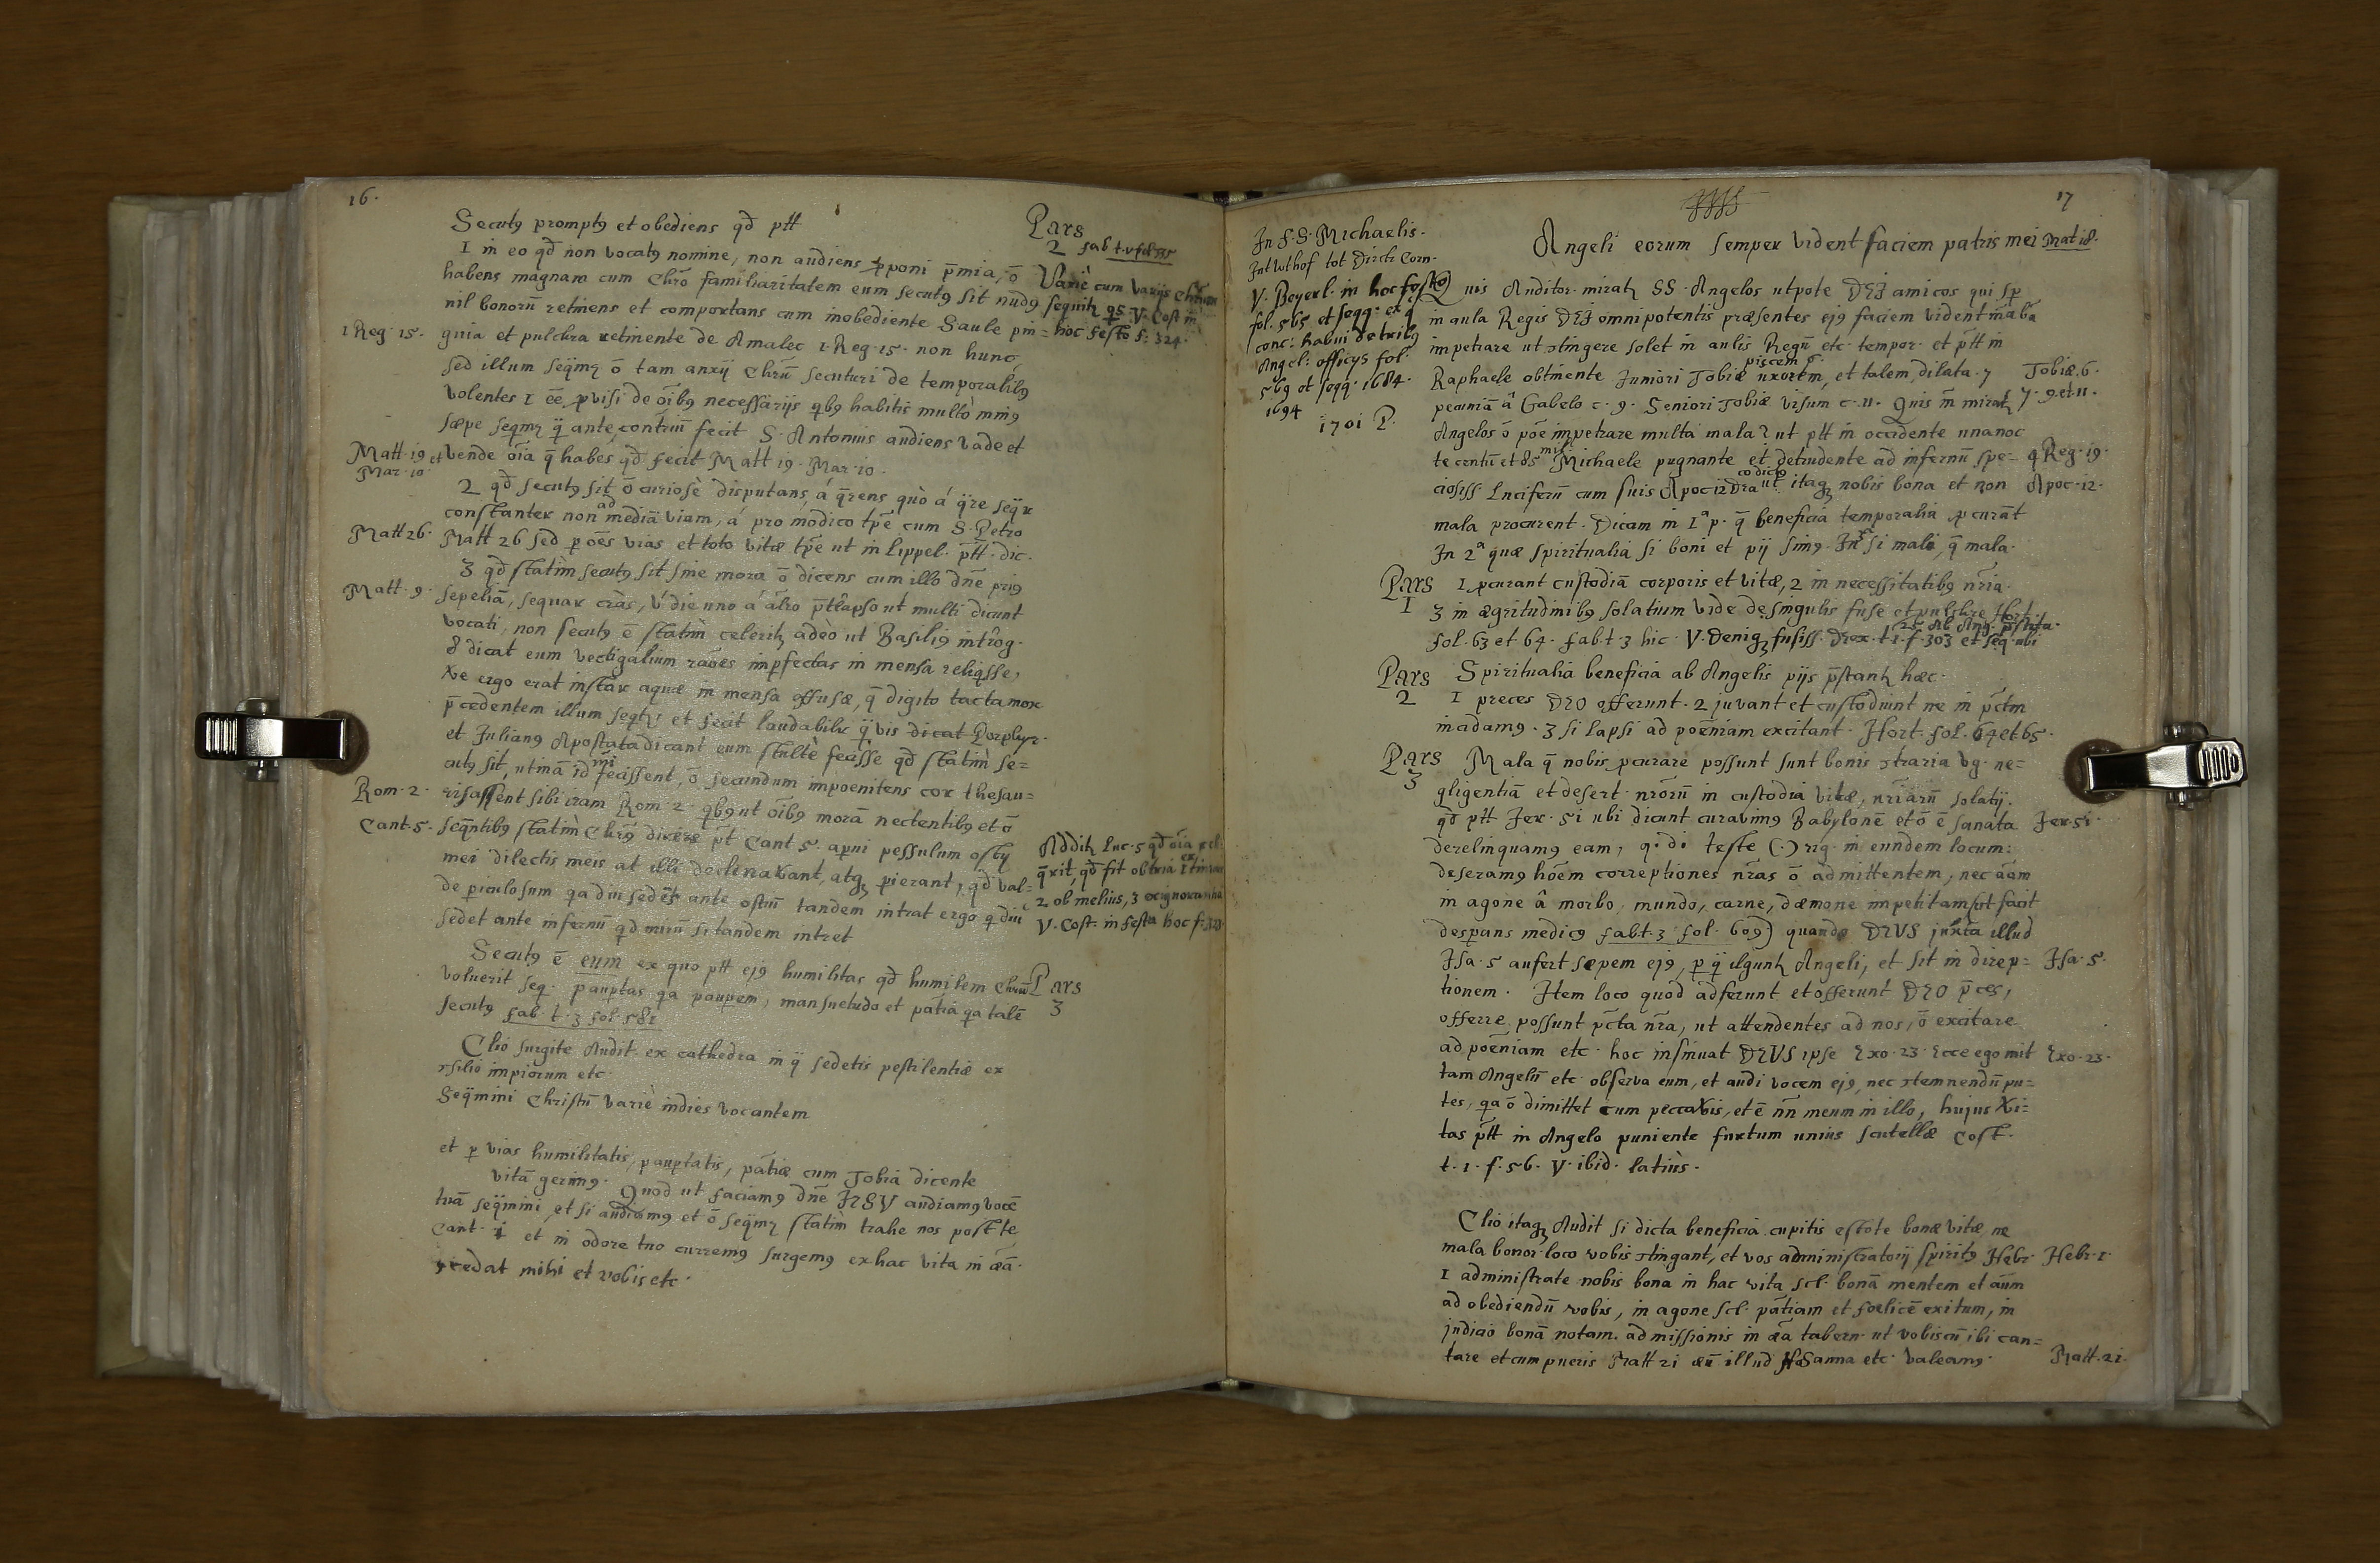 16.
Secutꝰ promptꝰ et obediens qđ ptt
Pars
2 fab t. v fol 555
1 in eo qđ non vocatꝰ nomine, non audiens pponi p̄mia, ō
habens magnam cum Chrō familiaritatem eum secutꝰ sit nudꝰ
nil bonorū retinens et comportans cum inobediente Saule pin=
1 Reg. 15. guia et pulchra retinente de Amalec 1. Reg. 15. non hunc
Varie cum varijs
V. Cost in
hoc festo f. 324.
sed illum seqimr ō tam anxij Chrū secuturi de temporalibꝰ
volentes 1 ēē pvisi de oībꝰ necessarijs qbꝰ habitis multò minꝰ
sæpe seqimr q̄ ante, contriū fecit S. Antonius audiens vade et
Matt. 19 et
Mar. 10
vende oīa q̄ habes qđ fecit Matt 19. Mar. 10.
2 qđ secutꝰ sit ō curiosè disputans, á q̄rens quò á
constanter non ad mediā viam, á pro modico tpē cum S. Petro
Matt 26. Matt 26 sed p oēs vias et toto vitæ tpē ut in Lippel. ptt. dic.
3 qđ statim secutꝰ sit sine mora ō dicens cum illo dnē priꝰ
Matt. 9. sepeliā, sequar cràs, v die uno á altro p̄tlapso ut multi dicunt
vocati, non secutꝰ ē statim celeritr adeò ut Basiliꝰ introg.
8 dicat eum vectigalium raōes impfectas in mensa reliqsse,
Xe ergo erat instar aquæ in mensa effusæ, q̄ digito tacta mox
p̄cedentem illum seqtr et fecit laudabilitr q̄vis dicat Porphyr.
et Julianꝰ Apostata dicant eum stultè fecisse qđ statim se=
cutꝰ sit, utinā id mī fecissent, ō secundum impoenitens cor thesau=
Rom. 2. rizassent sibi iram Rom. 2. qbꝰ ut oībꝰ morā nectentibꝰ et ō
Cant. 5. seqntibꝰ statim Chrꝰ dicere pt Cant 5. apui pessulum ostij
mei dilectis meis at illi declinaverant, atqꝫ pierant, qđ val=
de piculosum qa diu sedēs ante ostiū tandem intrat ergo q diu
sedet ante infernū qđ mirū si tandem intret
Additr Luc. 5 qđ oīa rel.
2 ob melius, 3 ex ignorantia
V. Cost. in festo hoc f. 323
Secutꝰ ē eum ex quo ptt ejꝰ humilitas qđ humilem Chrum
Pars
3
voluerit seq. pauptas qa paupem, mansuetudo et pātia qa talē
secutꝰ fab. t. 3 fol. 581
Clio surgite Audit. ex cathedra in q̄ sedetis pestilentiæ ex
ɔsilio impiorum etc.
Seqmini Christū variè indies vocantem
et p vias humilitatis, pauptatis, pātiæ cum Tobia dicente
vitā gerimꝰ. Quod ut faciamꝰ dnē JESV audiamꝰ vocē
tuā seqmini, et si audiamꝰ et ō seqimr statim trahe nos post te
Cant. 1 et in odore tuo curremꝰ surgemꝰ ex hac vita in æā.
ɔcedat mihi et vobis etc.
17
In F. S. Michaelis.
V. Beyerl. in hoc festo
fol. 565 et seqq. ex q̄
conc: habui de tribꝰ
Angel: officijs fol.
569 et seqq. 1684.
1694
1701 P.
Angeli eorum semper vident faciem patris mei Mat 18.
Quis Auditor. miratr SS. Angelos utpote DEI amicos qui sp
in aula Regis DEI omnipotentis præsentes ejꝰ faciem vident
impetrare ut ɔtingere solet in aulis Regū etc. tempor. et ptt in
Raphaele obtinente Juniori Tobiæ piscem uxorem, et talem, dilata. 7 Tobiæ. 6.
pecuniā â Gabelo c. 9. Seniori Tobiæ visum c. 11. Quis m̄ miratr 7. 9. et 11.
Angelos ō pōe impetrare multa mala? ut ptt in occidente una noc
te centū et 85 mil. Michaele pugnante et detrudente ad infernū spe= 4 Reg. 19.
ciosiss. Luciferū cum suis Apoc 12 Dra codicto ut itaqꝫ nobis bona et non Apoc. 12.
mala procurent. Dicam in 1ᵃ p. q̄ beneficia temporalia pcurāt
In 2ᵃ quæ spiritualia si boni et pij simꝰ. In 3ᵃ si mali, q̄ mala.
Pars
1
1 pcurant custodiā corporis et vitæ, 2 in necessitatibꝰ nr̄ia.
3 in ægritudinibꝰ solatium vide de singulis fuse et pulchre Hort.
fol. 63 et 64. fab. t. 3 hic. V. Deniqꝫ fusiss. Drex. t. 1. f. 303 et seq. ubi
25 Ab Ang. p̄stita.
Pars
2
Spiritualia beneficia ab Angelis pijs p̄stantr hæc.
1 preces DEO offerunt. 2 juvant et custodiunt ne in pctm
incidamꝰ. 3 si lapsi ad poēniam excitant. Hort. fol. 64 et 65.
Pars
3
Mala q̄ nobis pcurare possunt sunt bonis ɔtraria vg. ne=
gligentiā et desert. nrōrū in custodia vitæ, nriārū solatij.
qđ ptt Jer. 51 ubi dicunt curavimꝰ Babylonē et ō ē sanata Jer. 51.
derelinquamꝰ eam, q. di teste (.) rig. in eundem locum:
deseramꝰ hōem correptiones nr̄as ō admittentem, nec aām
in agone â morbo, mundo, carne, dæmone impetitam (ut facit
despans medicꝰ fab. t. 3 fol. 609) quando DEUS juxta illud
Isa. 5 aufert sæpem ejꝰ, p q̄ ilguntr Angeli, et sit in direp= Isa. 5.
tionem. Item loco quod adferunt et offerunt DEO p̄ces,
offerre possunt pcta nr̄a, ut attendentes ad nos, ō excitare
ad poēniam etc. hoc insinuat DEUS ipse Exo. 23. Ecce ego mit Exo. 23.
tam Angelū etc. observa eum, et audi vocem ejꝰ, nec ɔtemnendū pu=
tes, qa ō dimittet cum peccavis, et ē nn̄ meum in illo, hujus Xi=
tas ptt in Angelo puniente furtum unius scutellæ Cost.
t. 1. f. 56. V. ibid. latiùs.
Clio itaqꝫ Audit si dicta beneficia cupitis estote bonæ vitæ, ne
mala bonor. loco vobis ɔtingant, et vos administratorij spiritꝰ Hebr. Hebr. 1.
1 administrate nobis bona in hac vita scl. bonā mentem et aīum
ad obediendū vobis, in agone scl. pātiam et foelicē exitum, in
judicio bonā notam. admissionis in æā tabern. ut vobiscū ibi can=
tare et cum pueris Matt 21 æū illud HoSanna etc. valeamꝰ. Matt. 21.